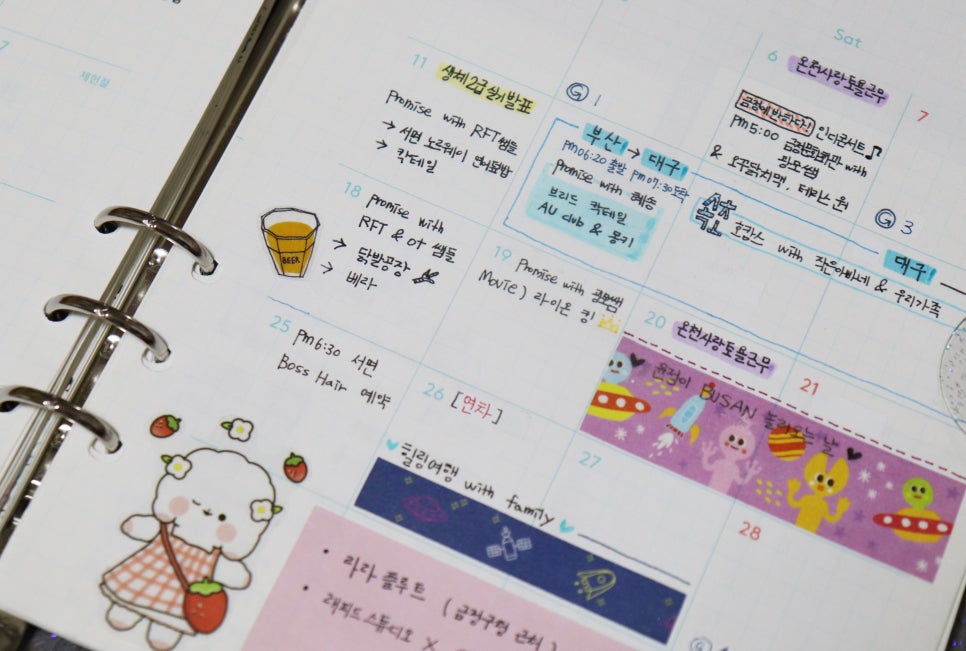 7
제헌절
Sat
11
생체2급실기발표
Promise with RFT쌤들
→ 서면 노르웨이 연어덮밥
→ 칵테일
G 1
부산 → 대구
PM 06:20 출발 PM 07:30도착
Promise with 혜송
브리드 칵테일
AU club & 몽키
6
온천사랑토욜근무
금정에반하다! 인디콘서트♪
PM 5:00
with
광모쌤
& 오꾸닭치맥, 테라스 원
7
G 3
호캉스 with 작은아빠네 & 우리가족
대구
18
Promise with
RFT & OT 쌤들
→ 닭발공장
→ 베라
BEER
19
Promise with 광모쌤
Movie) 라이온 킹
20
온천사랑토욜근무
21
윤정이 BUSAN 놀러오는 날
25
PM 6:30 서면
Boss Hair 예약
26
[연차]
힐링여행 with family
27
28
• 라라 플루트 (금정구청 근처)
• 래피드스튜디오 X